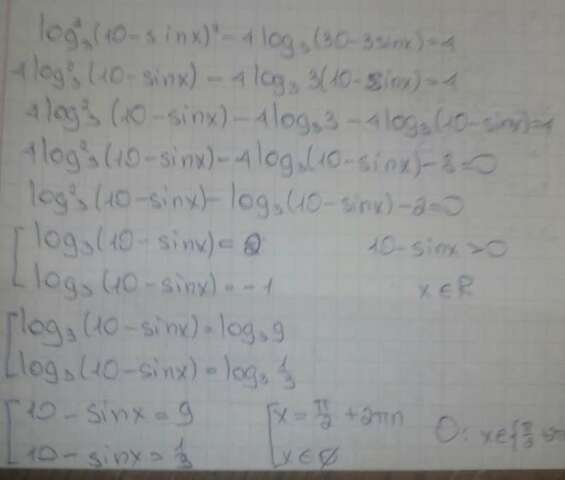 log²₃(10-sinx)²-4log₃(30-3sinx)=4
4log²₃(10-sinx)-4log₃3(10-sinx)=4
4log²₃(10-sinx)-4log₃3-4log₃(10-sinx)=4
4log²₃(10-sinx)-4log₃(10-sinx)-8=0
log²₃(10-sinx)-log₃(10-sinx)-2=0
[log₃(10-sinx)=2 10-sinx>0
log₃(10-sinx)=-1 x∈R
[log₃(10-sinx)=log₃9
log₃(10-sinx)=log₃1/3
[10-sinx=9 [x=π/2+2πn O: x∈{π/2
10-sinx=1/3 x∈∅